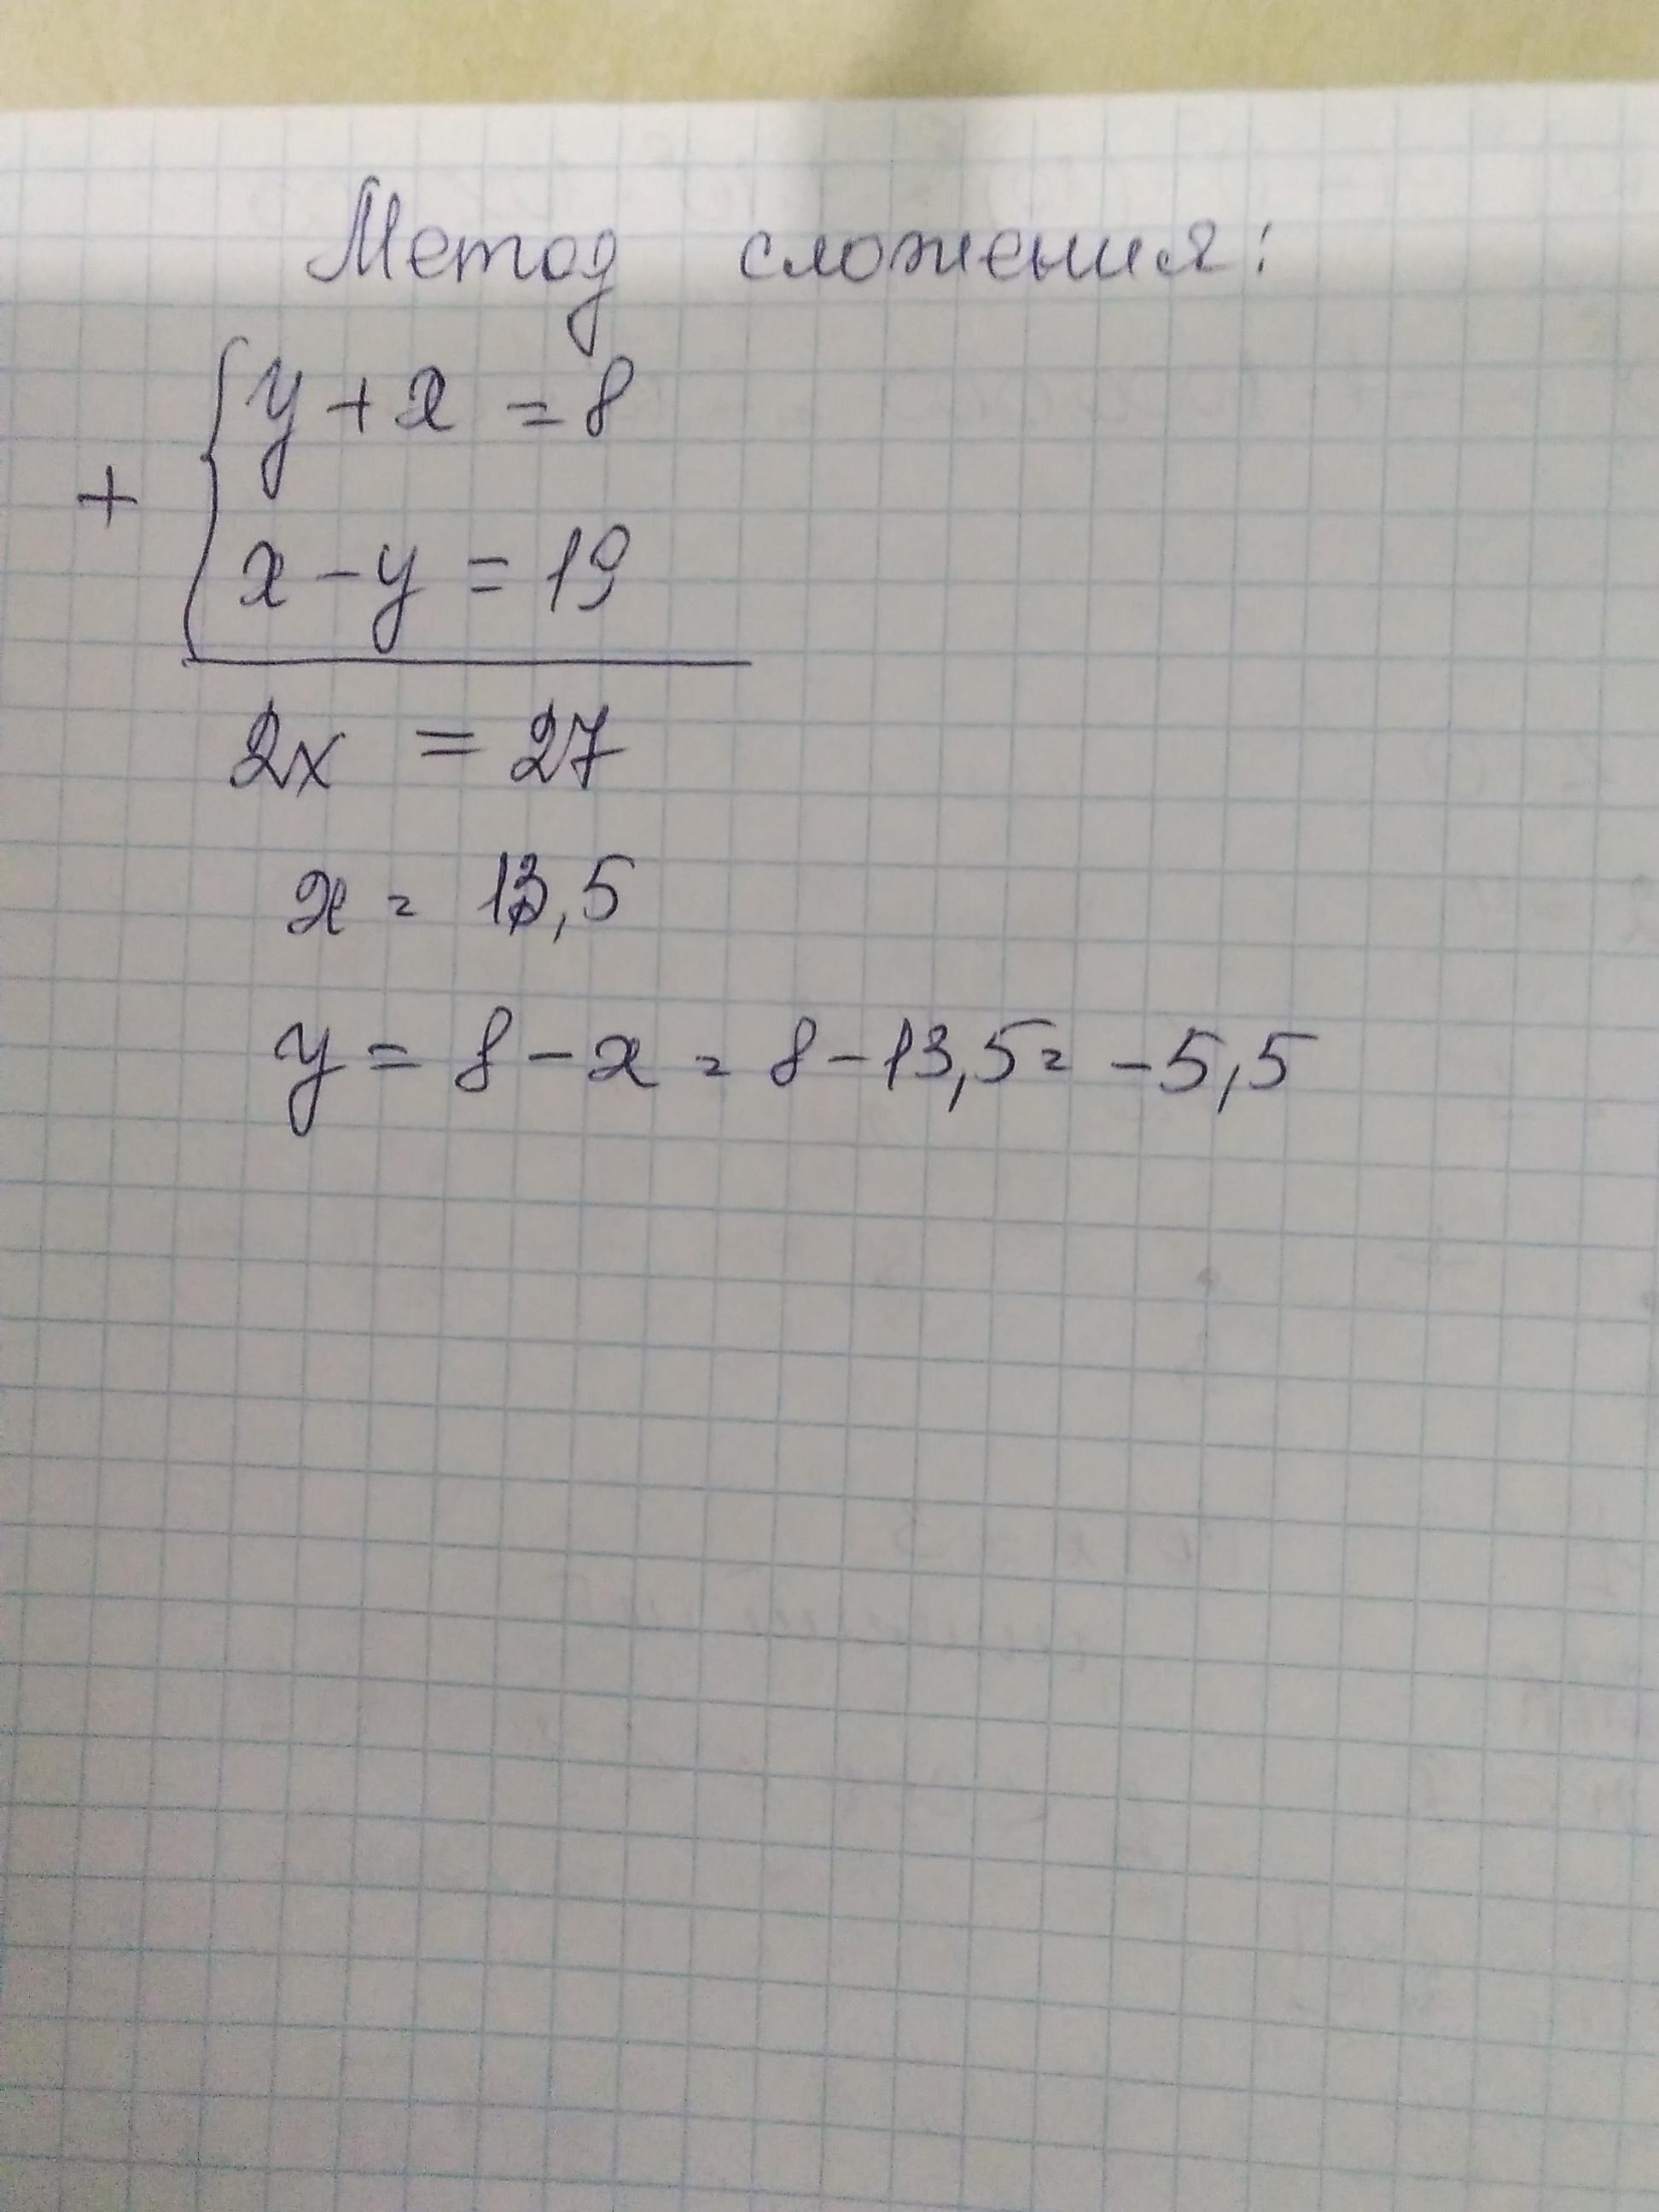 Метод сложения:
y + x = 8
+
x - y = 19
2x = 27
x = 13,5
y = 8 - x = 8 - 13,5 = -5,5